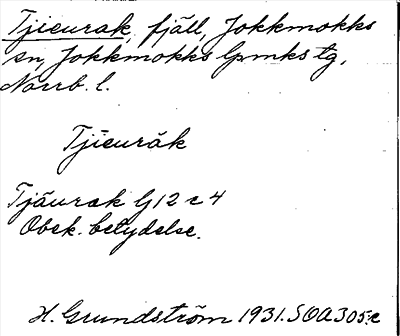 Tjieurak, fjäll, Jokkmokks
sn, Jokkmokks lpmks tg,
Norrb. l.
Tjieurăk
Tjäurak G 12 c 4
Obek. betydelse.
H. Grundström 1931. SOA 305:c